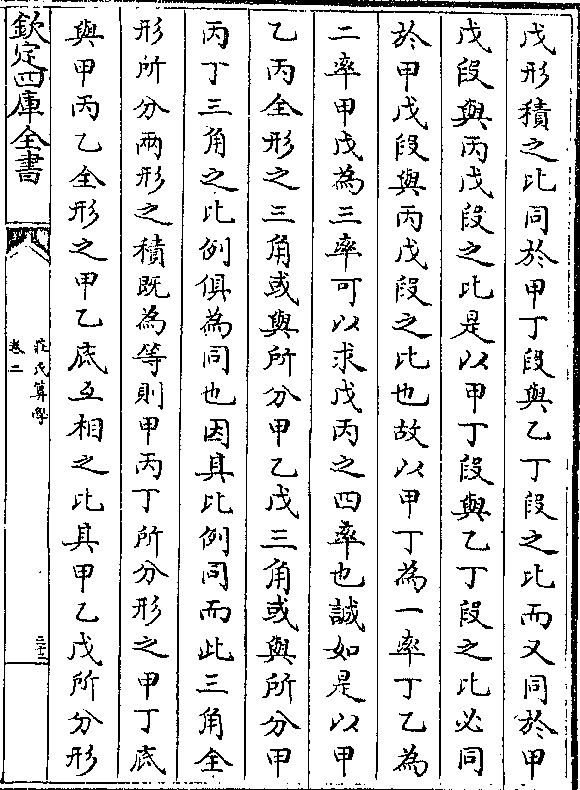 戊形積之比同於甲丁段與乙丁段之比而又同於甲
戊段與丙戊段之比是以甲丁段與乙丁段之比必同
於甲戊段與丙戊段之比也故以甲丁為一率丁乙為
二率甲戊為三率可以求戊丙之四率也誠如是以甲
乙丙全形之三角或與所分甲乙戊三角或與所分甲
丙丁三角之比例俱為同也因其比例同而此三角全
形所分兩形之積既為等則甲丙丁所分形之甲丁底
與甲丙乙全形之甲乙底互相之比其甲乙戊所分形
欽定四庫全書
莊氏算學
卷二
二十二